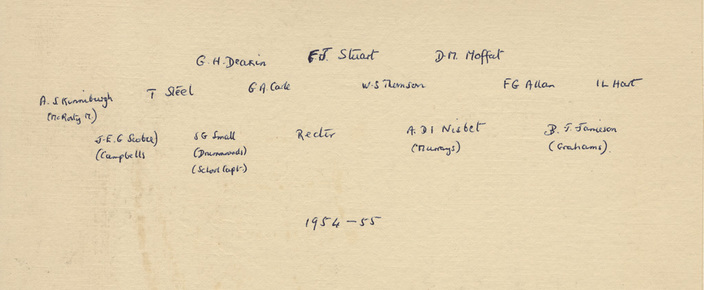 G.H. Deakin F.J. Stuart D.M. Moffat
A. S Kinniburgh T Steel G A. Carle W.S Thomson F G Allan I L Hart
J.E.G (Campbells
S G Small (Drummonds) (School Capt.)
Rector
A. D I Nisbet (Murrays)
B. J. Jamieson (Grahams)
1954-55